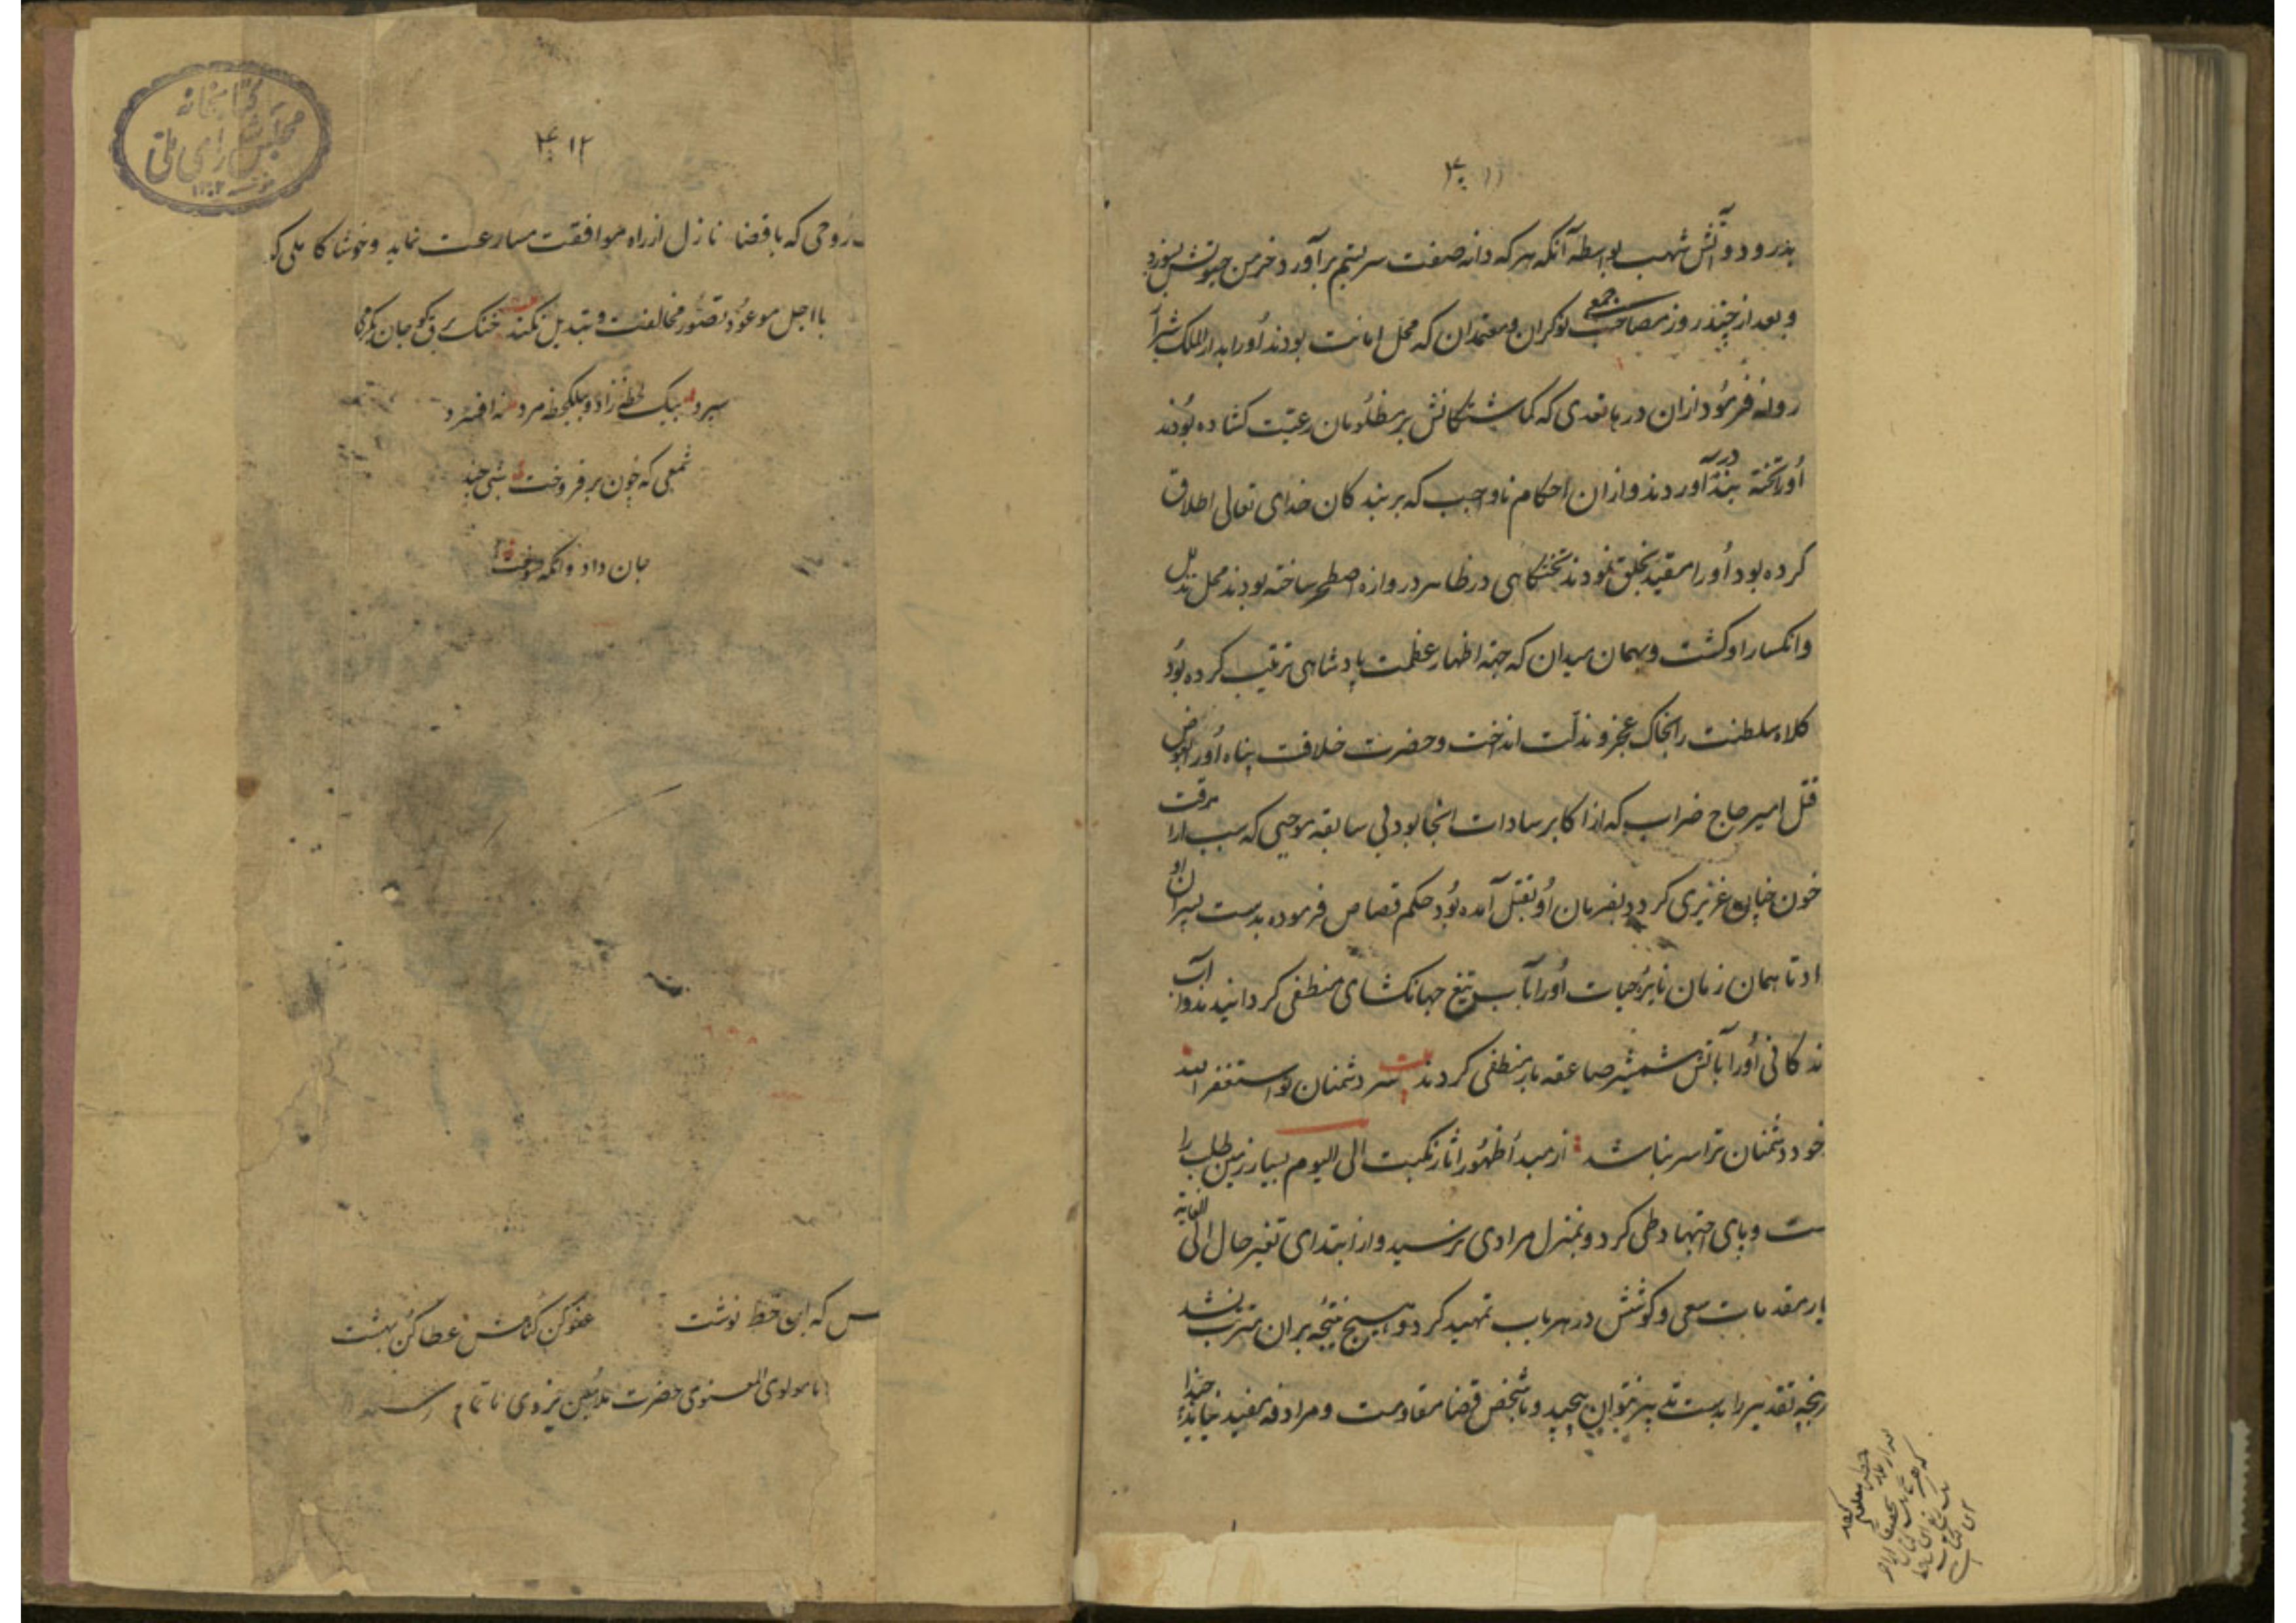 ۴۰۱۱
بدرود و آتش شهب بواسطه آنکه هر که دانه صفت سر بستم برآورد خرمن حیوتش بسوزد
و بعد از چند روز مصاحب جمعی نوکران و معتمدان که محل امانت بودند اورا بدار الملک شیراز
روانه فرمود ازان در باتعدی که کماشتکانش بر مظلومان رعیت کشاده بودند
اورا تخته بند در آوردند و ازان احکام ناواجب که بر بندکان خدای تعالی اطلاق
کرده بود اورا مقید بخلق نمودند تختکاهی در ظاهر دروازه اصطخر ساخته بودند محل تذلل
و انکسار او کشت و بهمان میدان که جهة اظهار عظمت پادشاهی ترتیب کرده بود
کلاه سلطنت را بخاک عجز و مذلت انداخت و حضرت خلافت پناه اورا بعوض
قتل امیر حاج ضراب که از اکابر سادات انجا بود بی سابقه موجبی که سبب اراقت
خون چنان عزیزی کردد بفرمان او بقتل آمده بود حکم قصاص فرموده بدست پسران او
داد تا همان زمان نایره حیات اورا بآب تیغ جهانکشای منطفی کردانیدند و آب
ندکانی اورا بآتش شمشیر صاعقه بار منطفی کردند بیت سر دشمنان تو استغفر الله
خود دشمنان ترا سر نباشد از مبدأ ظهور اثار نکبت الی الیوم بسیار زمین طلب را
ست و پای اجتهاد طی کرد و بمنزل مرادی نرسید و از ابتدای تغیر حال الی الغایة
یار مقدمات سعی و کوشش در هر باب تمهید کرد و هیچ نتیجه بران مترتب نشد
پنجه تقدیر را بدست تدبیر نتوان پیچید و با شخص قضا مقاومت و مرادفه مفید نیاید حبذا
۴۰۱۲
روحی که با قضاء نازل از راه موافقت مسارعت نماید و خوشا کاملی که
با اجل موعود تصور مخالفت و تبدیل نکند خنک
بیک لحظه زاد و بیکلحظه مرد
شمعی که چون برفروخت شبی چند
جان داد و انکه سوخت
س که این خط نوشت عفو کن کناهش عطا کن بهشت
مولوی المعنوی حضرت ملا معین یزدی
کتابخانه
مجلس شورای ملی